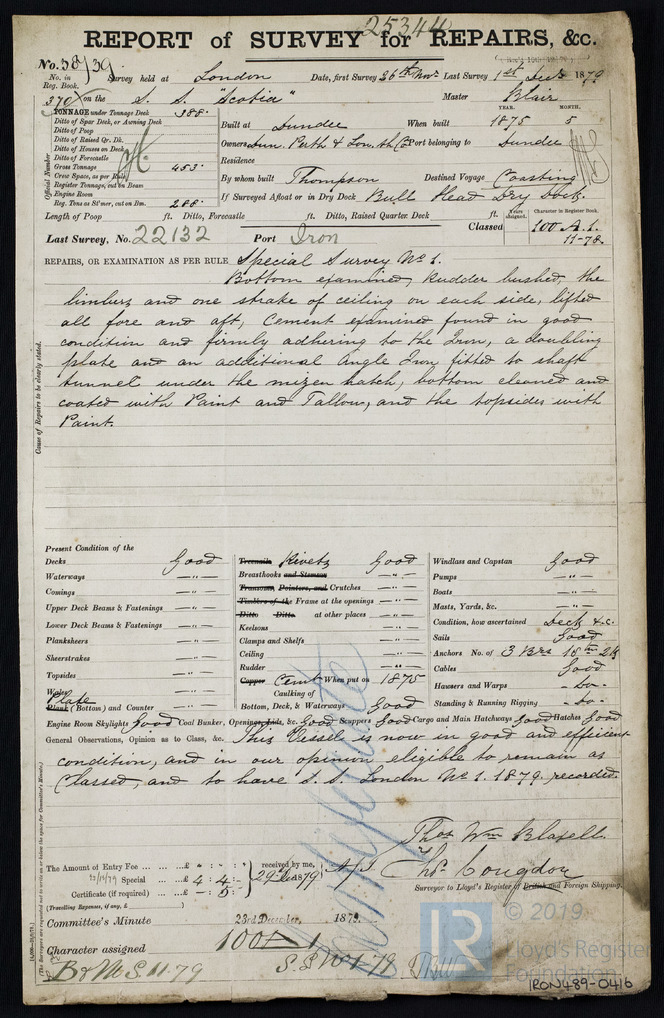 25344
REPORT OF SURVEY for REPAIRS, &c.
No. 58/39
No. in Reg. Book.
Survey held at London Date, first Survey 26th Novr Last Survey 1st Decr 1879
370 on the S. S. "Scotia" Master Blair
TONNAGE under Tonnage Deck 388.
Ditto of Spar Deck, or Awning Deck
Ditto of Poop
Ditto of Raised Qr. Dk.
Ditto of Houses on Deck
Ditto of Forecastle
Gross Tonnage 453.
Crew Space, as per Rule
Register Tonnage, cut on Beam
Engine Room
Reg. Tons as St'mer, cut on Bm. 288.
Official Number
YEAR. MONTH.
Built at Dundee When built 1875 5
Owners Dun. Perth & Lon. Port belonging to Dundee
Residence
By whom built Thompson Destined Voyage Coasting
If Surveyed Afloat or in Dry Dock Bull Head Dry Dock.
Length of Poop ft. Ditto, Forecastle ft. Ditto, Raised Quarter Deck ft.
Years assigned. Character in Register Book.
Classed 100 A.1. 11-78
Last Survey, No. 22132 Port Iron
REPAIRS, OR EXAMINATION AS PER RULE Special Survey No 1.
Bottom examined, Rudder bushed, the
limbers and one strake of ceiling on each side, lifted
all fore and aft, Cement examined found in good
condition and firmly adhering to the Iron, a doubling
plate and an additional Angle Iron fitted to shaft
tunnel under the mizen hatch, bottom cleaned and
coated with Paint and Tallow, and the topsides with
Paint.
Cause of Repairs to be clearly stated.
Present Condition of the
Decks Good
Waterways —"—
Comings —"—
Upper Deck Beams & Fastenings —"—
Lower Deck Beams & Fastenings —"—
Planksheers —"—
Sheerstrakes —"—
Topsides —"—
Wales
Plate
Plank (Bottom) and Counter —"—
Treenails Rivets Good
Breasthooks and Stemson —"—
Transoms, Pointers, and Crutches —"—
Timbers of the Frame at the openings —"—
Ditto Ditto at other places —"—
Keelsons —"—
Clamps and Shelfs —"—
Ceiling —"—
Rudder —"—
Copper Cemt When put on 1875
Caulking of
Bottom, Deck, & Waterways Good
Windlass and Capstan Good
Pumps —"—
Boats —"—
Masts, Yards, &c. —"—
Condition, how ascertained Deck &c.
Sails Good
Anchors No. of 3 Brs 1 Stm 2 K
Cables Good
Hawsers and Warps - Do -
Standing & Running Rigging - Do -
Engine Room Skylights Good Coal Bunker, Openings, Lids, &c. Good Scuppers Good Cargo and Main Hatchways Good Hatches Good
General Observations, Opinion as to Class, &c. This Vessel is now in good and efficient
condition, and in our opinion eligible to remain as
Classed, and to have S. S. London No 1. 1879. recorded.
Thos Wm Blasell.
Thos. Congdon
Surveyor to Lloyd's Register of British and Foreign Shipping.
The Amount of Entry Fee ... £ " : " : received by me,
Special ... £ 4 : 4 : -
Certificate (if required) ... £ - : 5 : -
(Travelling Expenses, if any, £ )
1879
Committee's Minute 23rd December, 1879.
Character assigned 100A 1
B & M S. 11.79
S. S No 1-79
(The Surveyors are requested not to write on or below the space for Committee's Minute.)
© 2019
Lloyd's Register
Foundation
IRON489-0416